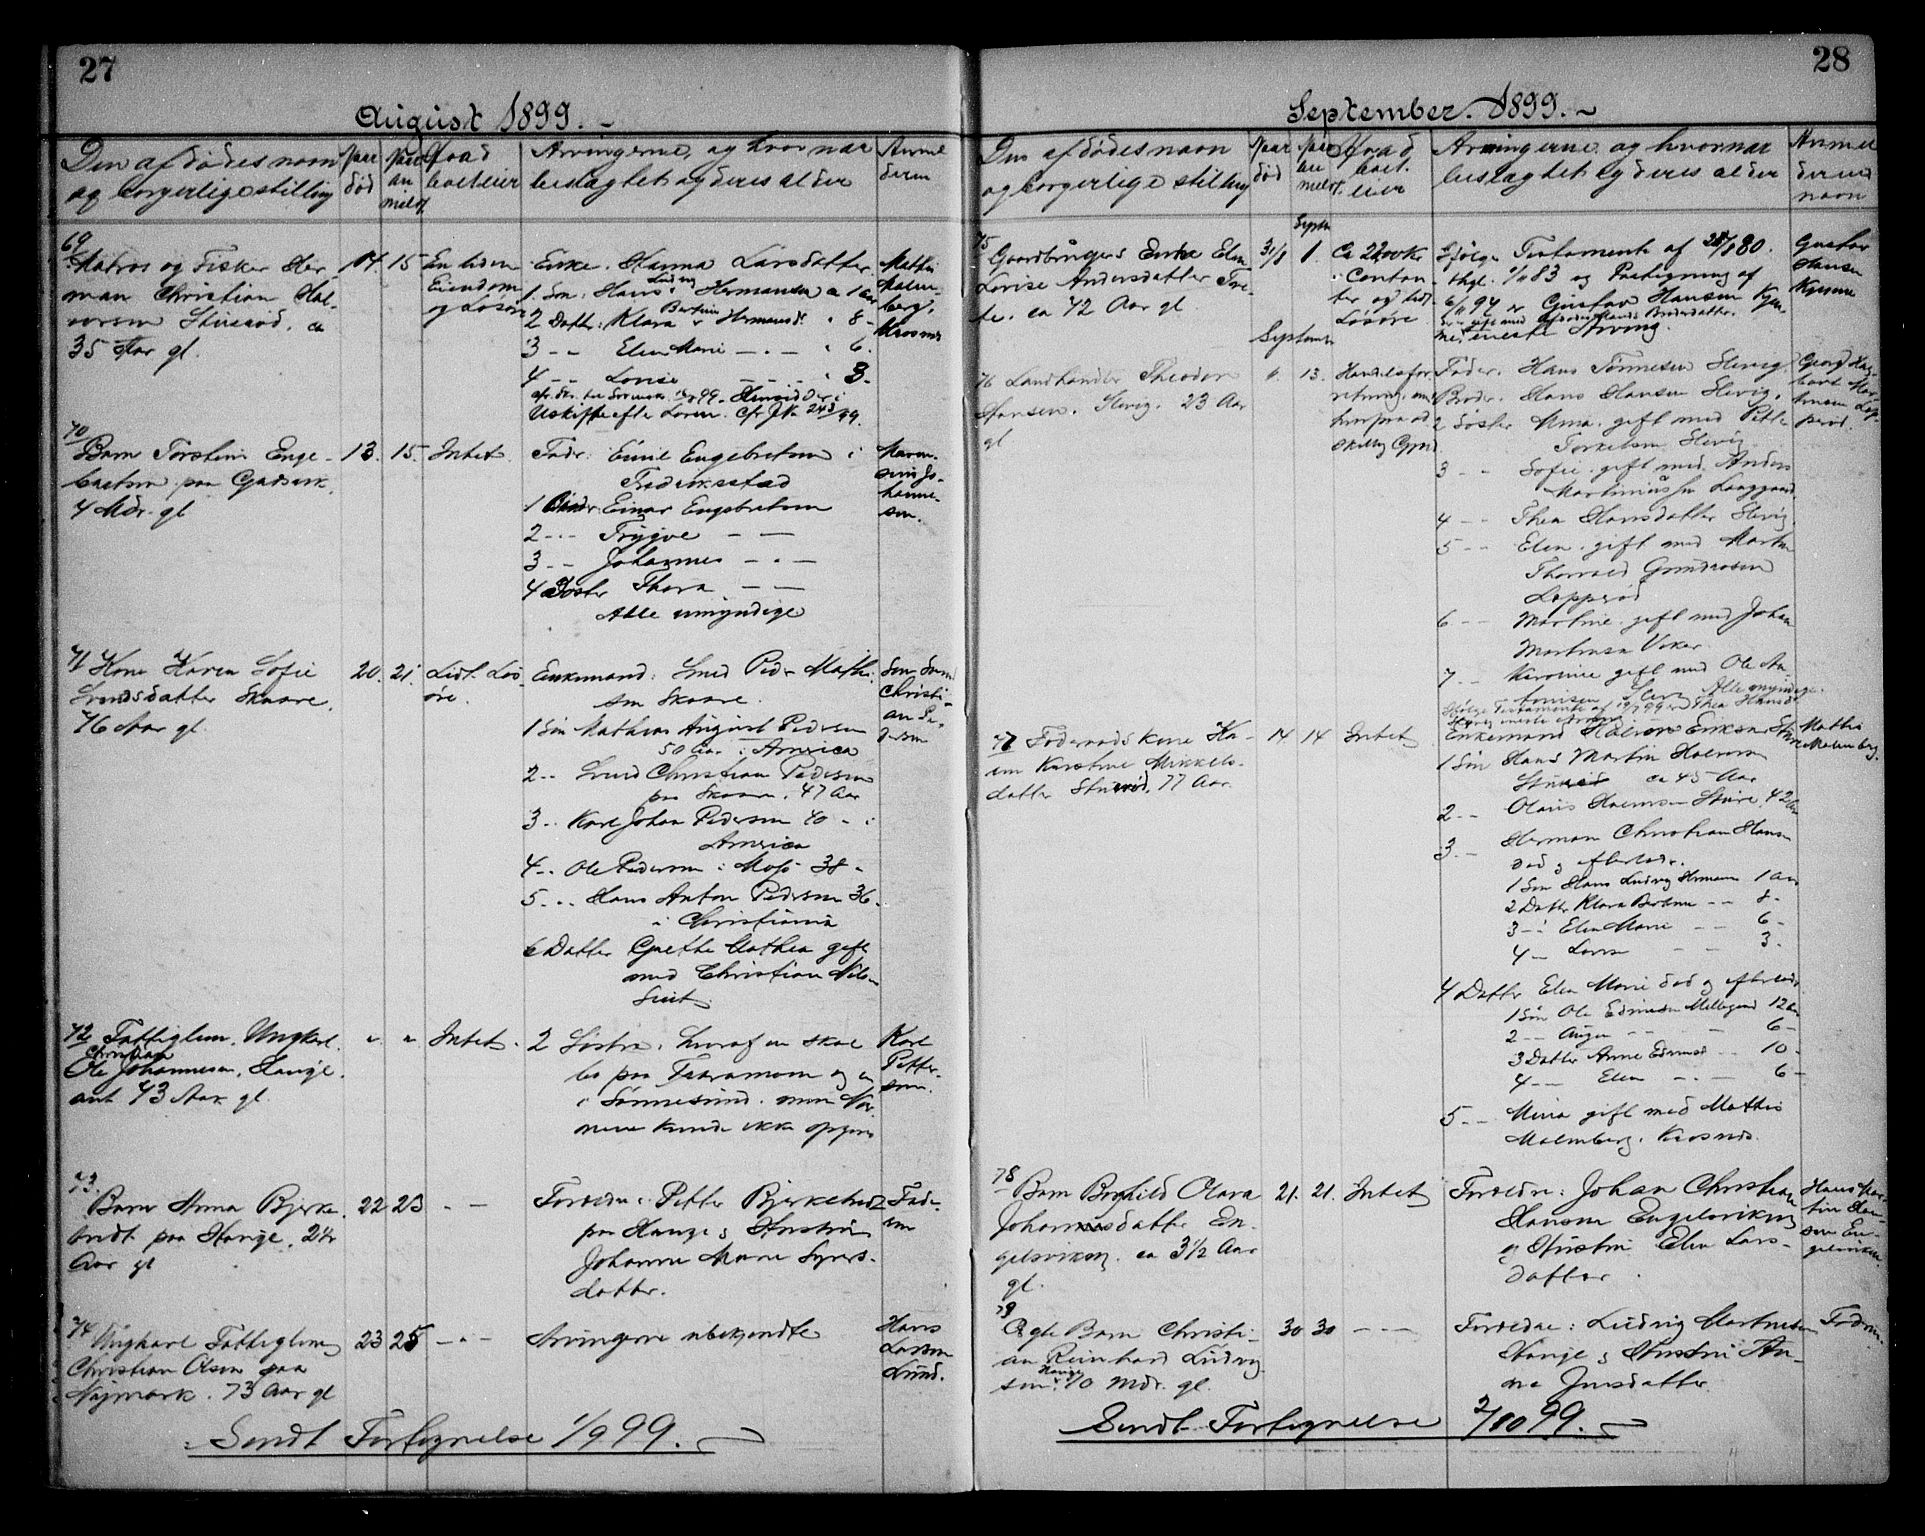 27
August 1899. -
Den afdødes navn
og borgerlige stilling
Naar
død
Naar
an
meldt.
Hvad
boet eier
Arvingerne, og hvor nær
beslægtet og deres alder
Anmel
deren
69
Matros og Fisker Her
man Christian Hal
vorsen Stuerød. ca
35 Aar gl.
14.
15
En liden
Eiendom
og Løsøre
Enke. Hanna Larsdatter.
1. Søn: Hans Ludvig Hermansen a 1 aar
2 Datter: Klara Bertine Hermansd. " 8 -
3 - - Elen Marie - . - " 6.
4 - - Lovise - - - " 3.
Mathis
Malm-
berg,
Krosnes
70
Barn Torstein Enge-
bretsen paa Gudsek.
4 Mdr. gl
13.
15.
Intet.
Fader: Emil Engebretsen i
Fredriksstad
1 Broder: Einar Engebretsen
2 - . - Trygve - -
3 - - Johannes - . -
4 Søster Thora - -
Alle umyndige
Maren-
sius Jo-
hanne-
sen.
71 Kone Karen Sofie
Svendsdatter Skaare.
76 Aar gl.
20.
21.
Lidt Løs
øre.
Enkemand: Smed Peder Mathi-
sen Skaare.
1 Søn Mathias August Pedersen
50 Aar i America
2 - - Smed Christian Pedersen
paa Skaare. 47 Aar
3 - . Karl Johan Pedersen 40 - i
America
4 - . Ole Pedersen i Moss 38 -
5 - . - Hans Anton Pedersen 36.
i Christiania
6 Datter Grethe Mathea gift
med Christian Nilsen
Søn Smed
Christi-
an Pe-
dersen
72 Fattiglem. Ungkarl.
Christian
Ole Johannesen, Hauge.
ant 73 Aar gl.
"
"
Intet.
2 Søstre, hvoraf en skal
bo paa Fraramoen og en
i Sønnesund. men Nav
nene kunde ikke opgives
Karl
Petter-
sen.
73.
Barn Anna Bjerke
bredt paa Hauge. 2½
Aar gl
22
23
- -
Forældre: Petter Bjerkebredt
paa Hauge og Hustru
Johanne Marie Syvers-
datter.
Fade-
ren
74
Ungkarl Fattiglem
Christian Olsen paa
Nymark. 73 Aar gl
23
25
- . -
Arvingerne ubekjendte
Hans
Larsen
Lund.
Sendt Fortegnelse 1/9 99.
28
September. 1899. -
Den afdødes navn
og borgerlige stilling
Naar
død
Naar
an
meldt.
Hvad
boet
eier
Arvingerne og hvornær
beslægtet og deres alder
Anmel
derens
navn
75
Gaardbrugers Enke Elen
Lovise Andersdatter
ca 72 Aar gl
31/8
Septbr
1.
Ca 2200 kr
i Contan
ter og lidt
Løsøre
Ifølge Testamente af 28/8 80.
thgl. 1/11 83 og Paategning af
6/11 94 er Gustav Hansen
eneste Arving.
Gustav
Hansen
September
76 Landhandler Theodor
Hansen. Slevig. 23 Aar
gl
13.
Handelsfor
retning
Fader. Hans Tønnesen Slevig.
Broder. Hans Hansen Slevig.
2 Søster Anna. gift med Petter
Torkelsen Slevig
3 - - Sofie. gift med Anders
Martiniussen
4 - - Thea Hansdatter Slevig.
5 - - Elen. gift med Martin
Thorvald Gundersen
Lopperød
6 - - Martine. gift med Johan
Martinsen Viker.
7 - - Karoline gift med Ole
Georg
77 Føderaadskone Ka-
ren Kirstine Mikkels-
datter Stuerød. 77 Aar.
14.
14
Intet
Enkemand Halvor Eriksen
1 Søn Hans Martin Halvorsen
ca 45 Aar
2 - - Olaus Halvorsen 42 Aar
3. - Herman Christian
død og efterladt.
1 Søn Hans Ludvig Hermansen 1 Aar
2 Datter Klara Bertine - - 8 -
3 - - Elen Marie - - 6 -
4 - Lovise - - 3 -
4 Datter Elen Marie død og efterladt
1 Søn Ole 12 Aar
2 - - - - 6 -
3 Datter Anne - - 10 -
4 - - Elen - . - 6 -
5 - - Mina gift med Mathis
Malmberg. Krosnes.
Mathis
Malmberg.
78
Barn Borghild Olava
Johannesdatter En-
gelsviken. ca 3½ Aar
gl.
21.
21.
Intet
Forældre: Johan Christian
Hansen Engelsviken
og Hustru Elen Lars-
datter.
Hans Mar
tin Han-
sen En-
gelsviken.
79
Ægte Barn Christi-
an Reinhard Ludvig
sen. Hauge 10 Mdr. gl.
30
30
- -
Forældre: Ludvig Martinsen
Hauge og Hustru An-
na Jensdatter.
Faderen.
Sendt Fortegnelse 2/10 99.